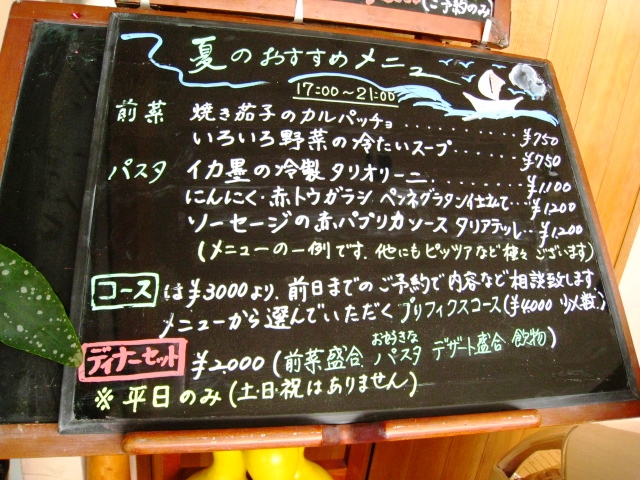 (ご予約のみ
夏のおすすめメニュー
17:00~21:00
前菜 焼き茄子のカルパッチョ..........¥750
いろいろ野菜の冷たいスープ.......¥750
パスタ イカ墨の冷製タリオリーニ..........¥1100
にんにく・赤トウガラシ ペンネグラタン仕立て...¥1200
ソーセージの赤パプリカソース タリアテッレ..¥1200
(メニューの一例です。他にもピッツァなど種々ございます)
コース は¥3000より、前日までのご予約で内容など相談致します
メニューから選んでいただく プリフィクスコース(¥4000 少人数)
ディナーセット ¥2000 (前菜盛合 お好きなパスタ デザート盛合 飲物)
※ 平日のみ(土・日・祝はありません)